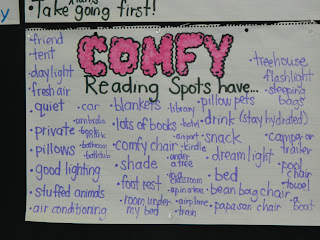 • Take turns going first!
COMFY
Reading Spots have...
• friend
• tent
• daylight
• fresh air
• quiet
• private
• pillows
• good lighting
• stuffed animals
• air conditioning
• car
• umbrella
• bathroom
• bathtub
• blankets
• lots of books
• comfy chair
• shade
• foot rest
• room under my bed
• library
• hotel
• airport
• kindle
• under a tree
• classroom
• up in a tree
• airplane
• train
• pillow pets
• drink (stay hydrated)
• snack
• dream light
• bed
• bean bag chair
• papasan chair
• treehouse
• flashlight
• sleeping bags
• camper or trailer
• pool chair
• towel
• boat